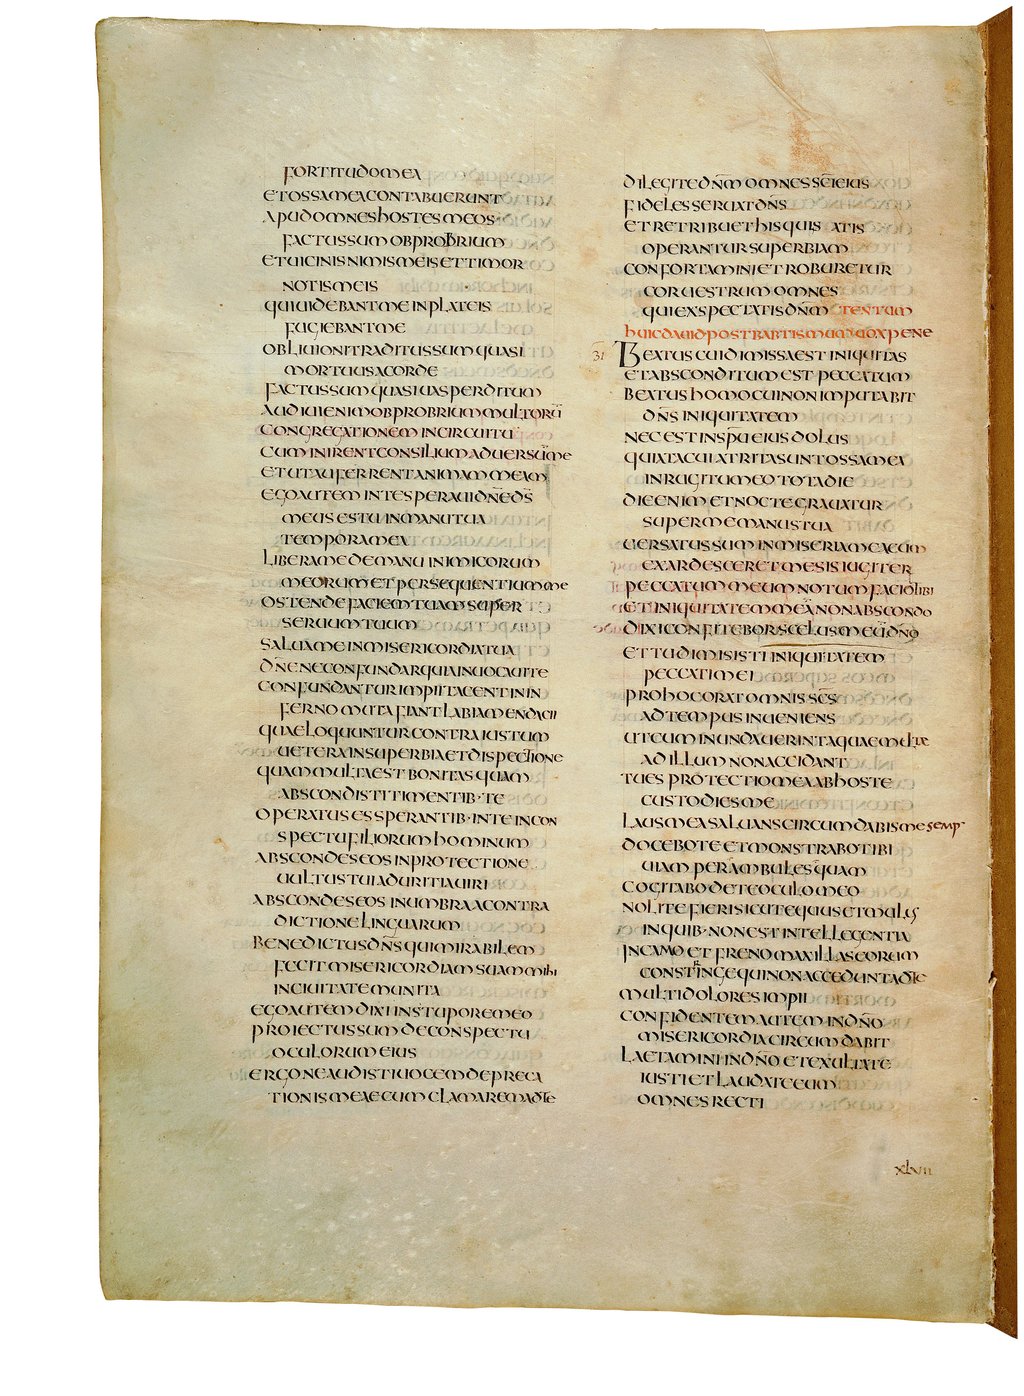 FORTITUDO MEA
ET OSSA MEA CONTABUERUNT
APUD OMNES HOSTES MEOS
FACTUS SUM OBPROBRIUM
ET UICINIS NIMIS MEIS ET TIMOR
NOTIS MEIS
QUI UIDEBANT ME IN PLATEIS
FUGIEBANT ME
OBLIUIONI TRADITUS SUM QUASI
MORTUUS A CORDE
FACTUS SUM QUASI UAS PERDITUM
AUDIUI ENIM OBPROBRIUM MULTORŪ
CONGREGATIONEM IN CIRCUITU
CUM INIRENT CONSILIUM ADUERSUM ME
ET UT AUFERRENT ANIMAM MEAM
EGO AUTEM IN TE SPERAUI DÑE DS̄
MEUS ES TU IN MANU TUA
TEMPORA MEA
LIBERA ME DE MANU INIMICORUM
MEORUM ET PERSEQUENTIUM ME
OSTENDE FACIEM TUAM SUPER
SERUUM TUUM
SALUA ME IN MISERICORDIA TUA
DÑE NE CONFUNDAR QUIA INUOCAUI TE
CONFUNDANTUR IMPII TACENT IN IN
FERNO MUTA FIANT LABIA MENDACII
QUAE LOQUUNTUR CONTRA IUSTUM
UETERA IN SUPERBIA ET DISPECTIONE
QUAM MULTA EST BONITAS QUAM
ABSCONDISTI TIMENTIB· TE
OPERATUS ES SPERANTIB· IN TE IN CON
SPECTU FILIORUM HOMINUM
ABSCONDES EOS IN PROTECTIONE
UULTUS TUI A DURITIA UIRI
ABSCONDES EOS IN UMBRA A CONTRA
DICTIONE LINGUARUM
BENEDICTUS DÑS QUI MIRABILEM
FECIT MISERICORDIAM SUAM MIHI
IN CIUITATE MUNITA
EGO AUTEM DIXI IN STUPORE MEO
PROIECTUS SUM DE CONSPECTU
OCULORUM EIUS
ERGONE AUDISTI UOCEM DEPRECA
TIONIS MEAE CUM CLAMAREM AD TE
DILEGITE DÑM OMNES SC̄I EIUS
FIDELES SERUAT DÑS
ET RETRIBUET HIS QUI SATIS
OPERANTUR SUPERBIAM
CONFORTAMINI ET ROBURETUR
COR UESTRUM OMNES
QUI EXSPECTATIS DÑM TENTUM
HUIC DAUID POST BAPTISMUM UOX PENE
31 BEATUS CUI DIMISSA EST INIQUITAS
ET ABSCONDITUM EST PECCATUM
BEATUS HOMO CUI NON IMPUTABIT
DÑS INIQUITATEM
NEC EST IN SPU EIUS DOLUS
QUIA TACUI ATRITA SUNT OSSA MEA
IN RUGITU MEO TOTA DIE
DIE ENIM ET NOCTE GRAUATUR
SUPER ME MANUS TUA
UERSATUS SUM IN MISERIA MEA CUM
EXARDESCERET MESIS IUGITER
PECCATUM MEUM NOTUM FACIO TIBI
ET INIQUITATEM MEĀ NON ABSCONDO
DIXI CONFITEBOR SCELUS MEŪ DÑO
ET TU DIMISISTI INIQUITATEM
PECCATI MEI
PRO HOC ORAT OMNIS SC̄S
AD TEMPUS INUENIENS
UT CUM INUNDAUERINT AQUAE MULTAE
AD ILLUM NON ACCIDANT
TU ES PROTECTIO MEA AB HOSTE
CUSTODIES ME
LAUS MEA SALUANS CIRCUMDABIS ME SEMP
DOCEBO TE ET MONSTRABO TIBI
UIAM PER AMBULES QUAM
COGITABO DE TE OCULO MEO
NOLITE FIERI SICUT EQUUS ET MULUS
IN QUIB· NON EST INTELLEGENTIA
IN CAMO ET FRENO MAXILLAS EORUM
CONSTRINGE QUI NON ACCEDUNT AD TE
MULTI DOLORES IMPII
CONFIDENTEM AUTEM IN DÑO
MISERICORDIA CIRCUMDABIT
LAETAMINI IN DÑO ET EXULTATE
IUSTI ET LAUDATE EUM
OMNES RECTI
XLVII